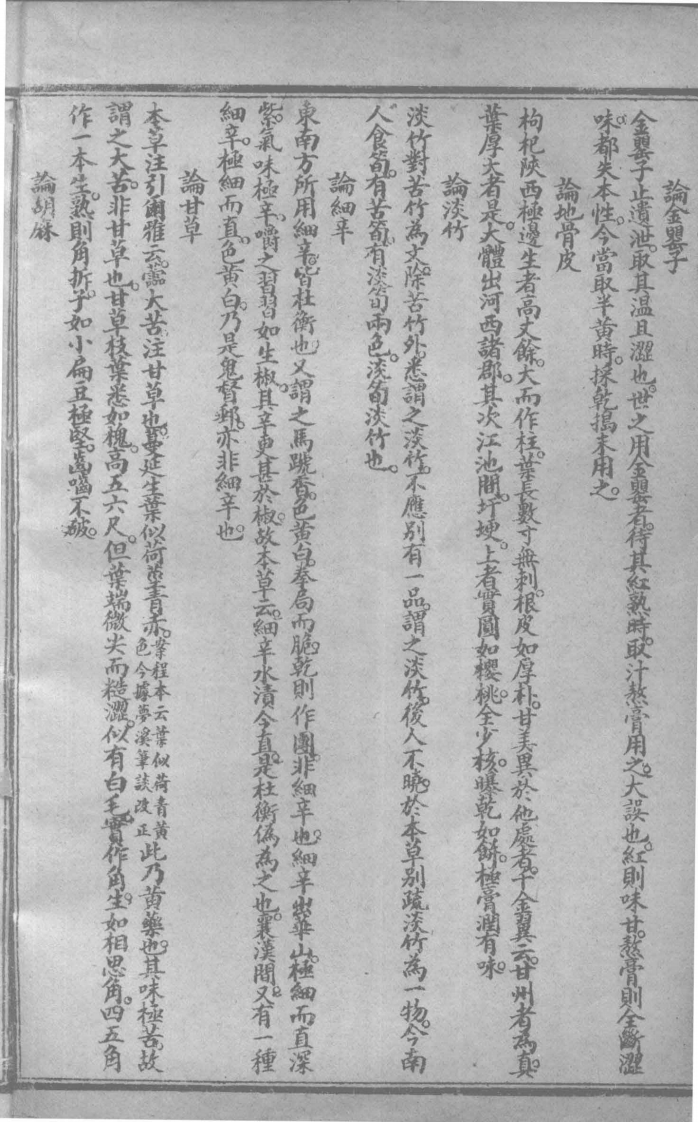 論金罌子
金罌子止遺泄。取其温且澀也。世之用金罌者。待其紅熟時。取汁熬膏用之。大誤也。紅則味甘。熬膏則全斷澀
味。都失本性。今當取半黄時。採乾搗末用之。
論地骨皮
枸杞陝西極邊生者高丈餘。大而作柱。葉長數寸無刺。根皮如厚朴。甘美異於他處者。千金翼云。甘州者為真
葉厚大者是。大體出河西諸郡。其次江池間。圩埂上者。實圓如櫻桃。全少核。曝乾如餅。極膏潤有味。
論淡竹
淡竹對苦竹為文。除苦竹外。悉謂之淡竹。不應別有一品。謂之淡竹。後人不曉於本草別疏淡竹為一物。今南
人食筍。有苦筍。有淡筍兩色。淡筍淡竹也。
論細辛
東南方所用細辛。皆杜衡也。又謂之馬蹏香。色黄白。拳局而脆。乾則作團。非細辛也。細辛出華山。極細而直。深
紫氣。味極辛。嚼之習習如生椒。其辛更甚於椒。故本草云。細辛水漬令直。是杜衡偽為之也。襄漢間。又有一種
細辛。極細而直。色黄白。乃是鬼督郵。亦非細辛也。
論甘草
本草注引爾雅云。蘦大苦。注甘草也。蔓延生葉似荷莖青赤。案程本云葉似荷青黄色今據夢溪筆談改正此乃黄藥也。其味極苦。故
謂之大苦。非甘草也。甘草枝葉悉如槐。高五六尺。但葉端微尖而糙澀。似有白毛。實作角生。如相思角。四五角
作一本生。熟則角拆。子如小扁豆極堅。齒嚙不破。
論胡麻